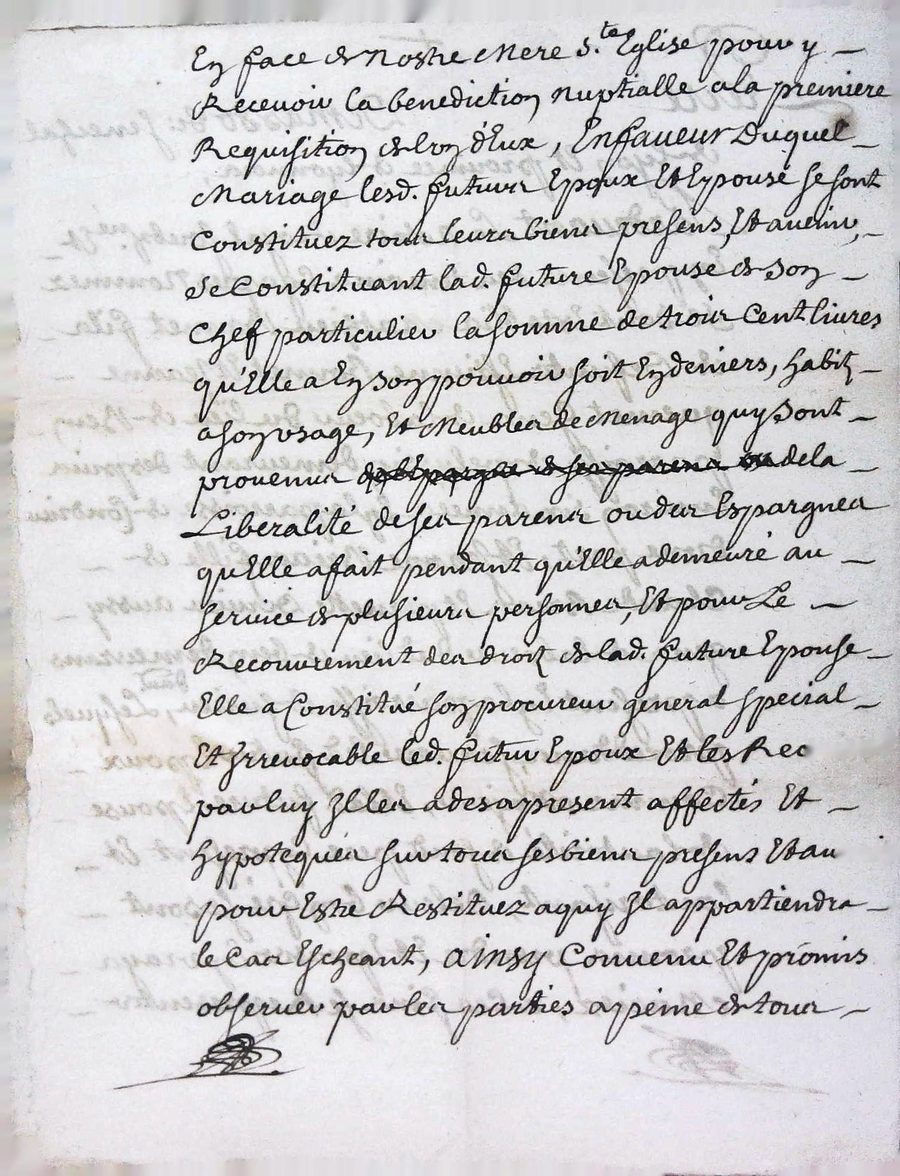 En face de Nostre Mere S.te Eglise pour y –
Recevoir la benediction nuptialle ala premiere
Requisition de lon d'Eux, En faveur Duquel –
Mariage lesd. futurs Epoux Et Epouse se sont
Constituez tous leurs biens presens, Et avenir, –
Se Constituant lad. future Epouse de Son –
Chef particulier la somme de trois Cent livres
qu'Elle a En son pouvoir soit En deniers, habitz –
a son usage, Et Meubles de Menage quy Sont –
provenus de la –
Liberalité de ses parens ou des Espargnes
qu'Elle a fait pendant qu'Elle a demeuré au –
service de plusieurs personnes, Et pour Le –
Recouvrement des droitz de lad. future Epouse –
Elle a Constitué son procureur general special –
Et Irrevocable led. futur Epoux Et les Rec
par luy Il les a des apresent affectés Et –
hypotequés sur tous ses biens presens Et av
pour Estre Restituez a quy Il appartiendra –
le Cas Escheant, ainsy Convenu Et promis
observer par les parties a peine de tous –